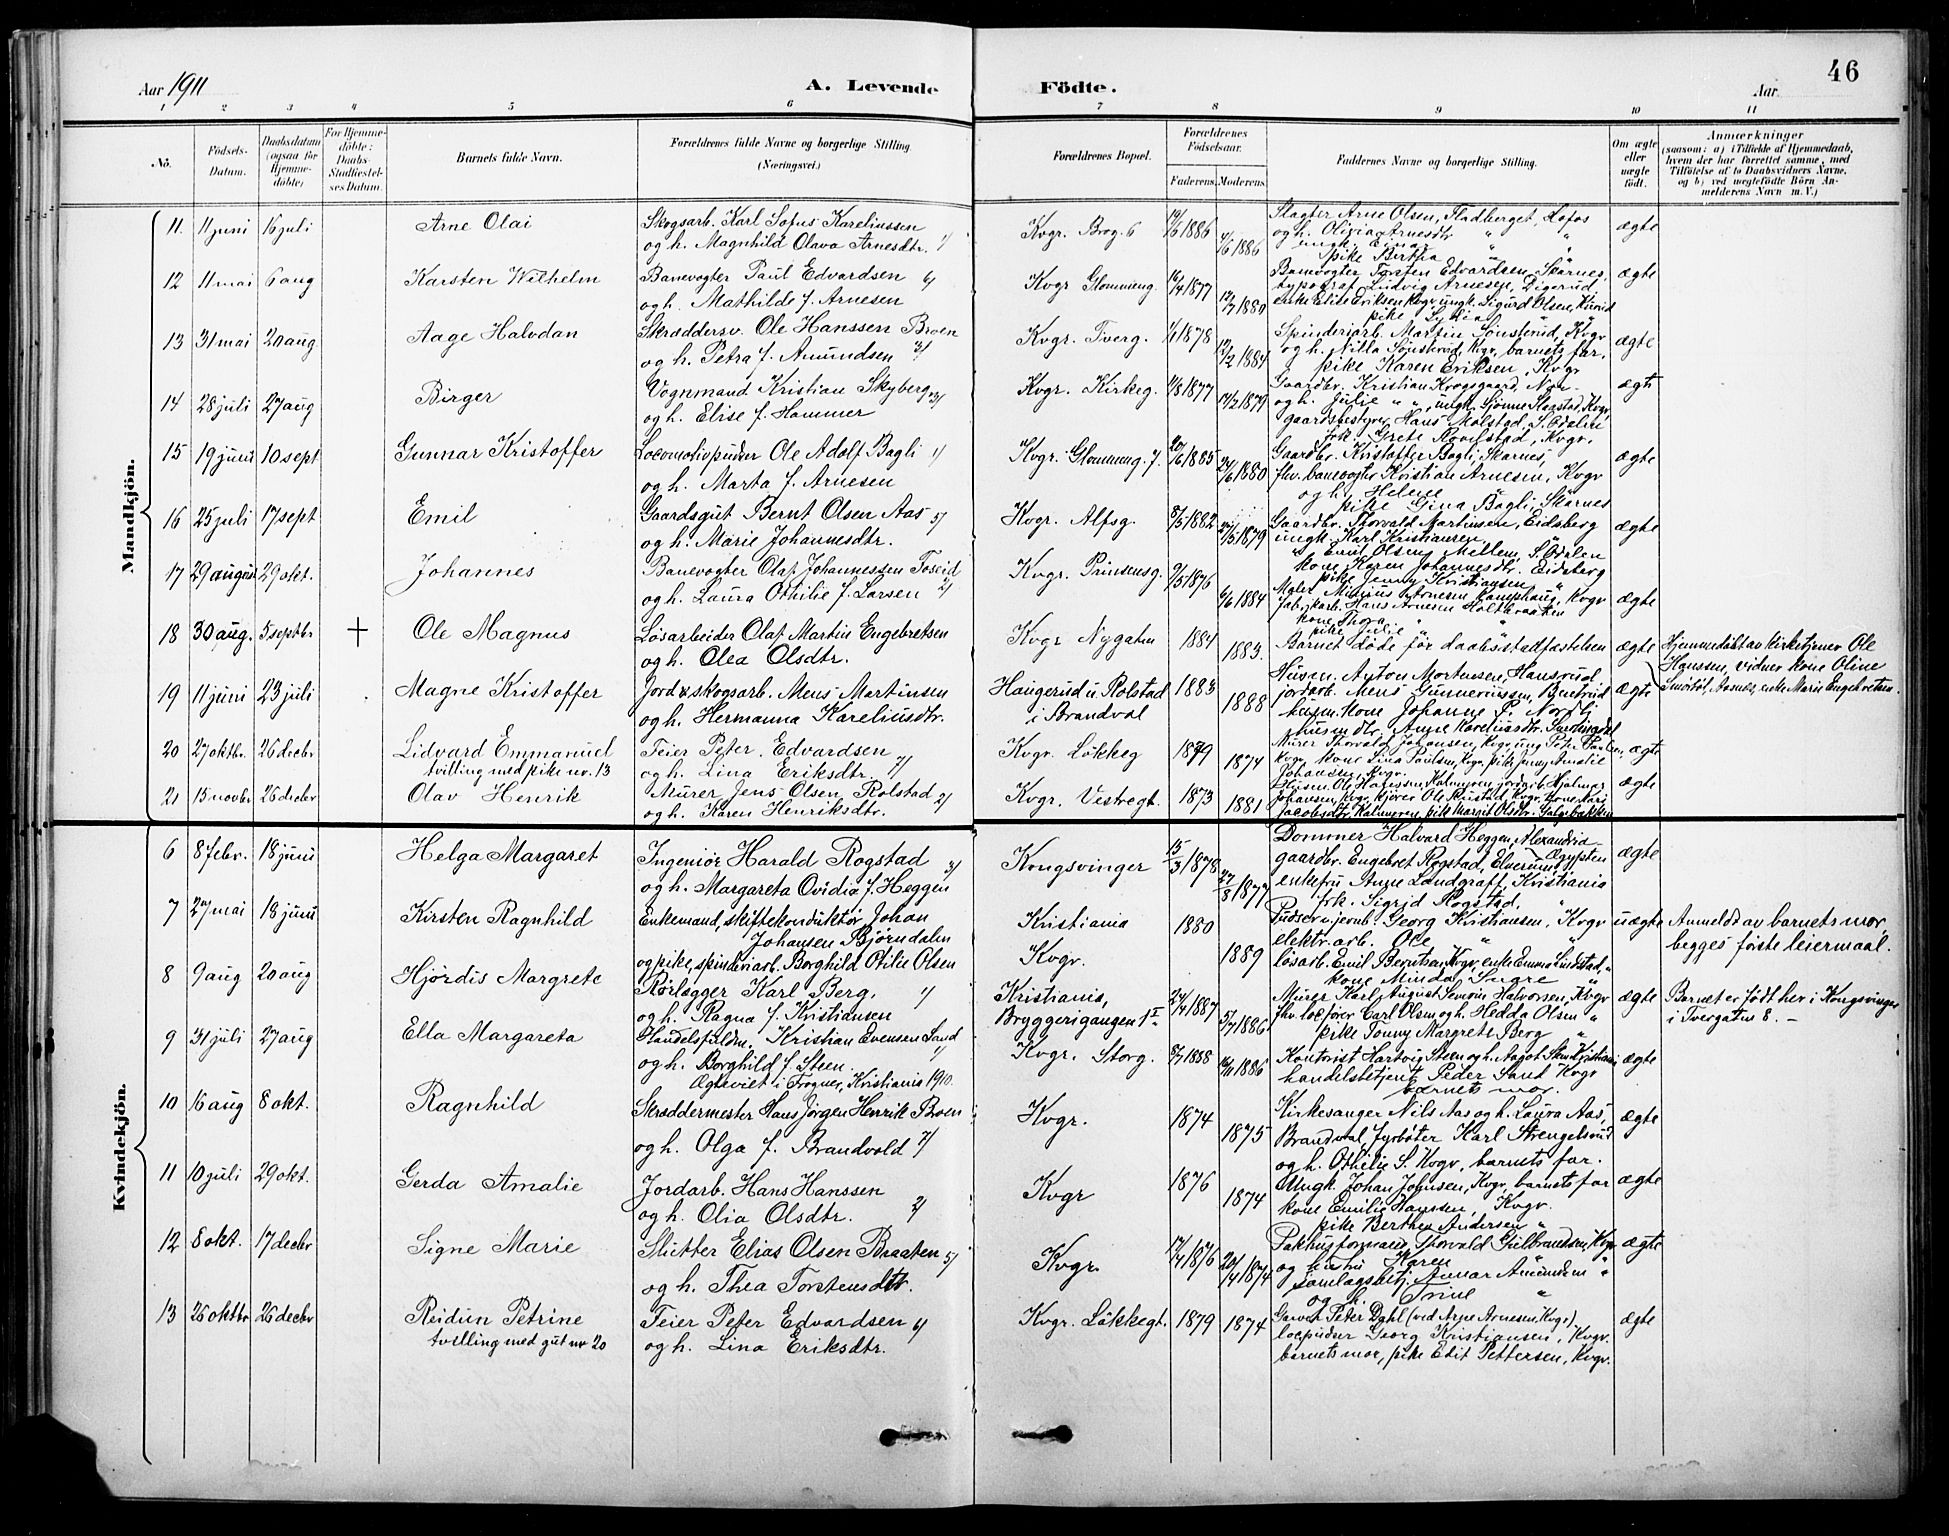 Aar 1911
A. Levende
Födte.
Aar
46
1 2 3 4 5 6 7 8 9 10 11
No.
Födsels-Datum.
Daabsdatum (ogsaa for Hjemme-döbte)
For Hjemme-döbte: Daabs-Stadfæstel-ses Datum.
Barnets fulde Navn.
Forældrenes fulde Navne og borgerlige Stilling. (Næringsvei.)
Forældrenes Bopæl.
Forældrenes Födselsaar.
Faderens. Moderens.
Faddernes Navne og borgerlige Stilling.
Om ægte eller uægte födt.
Anmærkninger
(saasom: a) i Tilfælde af Hjemmedaab, hvem der har forrettet samme, med Tilföielse af to Daabsvidners Navne, og b) ved uægtefödte Börn Anmelderens Navn m. V.)
Mandkjön.
11. 11 juni 16 juli Arne Olai Skogsarb. Karl Sofus Kareliussen
og h. Magnhild Olava Arnesdtr. 1/
Kvgr. Brog. 6 1886 1886
Slagter Arne Olsen, Fladberget, Hofos
og h. Olivia Arnesdtr " "
ungk. Einar " "
pike Bertha " "
ægte
12 11 mai 6 aug Karsten Wilhelm Banevogter Paul Edvardsen 6/
og h. Mathilde f. Arnesen
Kvgr Glommeng. 1877 1880
Banevogter Torsten Edvardsen, Skarnes,
typograf Ludvig Arnesen, Digerud,
enke Elise Eriksen Kvgr, ungk. Sigurd Olsen,
pike
ægte
13 31 mai 20 aug Aage Halvdan Skræddersv. Ole Hanssen Broen
og h. Petra f. Amundsen 3/
Kvgr. Tverg. 1878 1884
Spinderiarb. Martin Sønsterud, Kvgr
og h. Nilla Sønsterud, Kvgr, barnets far,
pike Karen Eriksen, Kvgr
ægte
14 28 juli 27 aug Birger Vognmand Kristian Skyberg 3/
og h. Elise f. Hammer
Kvgr. Kirkeg. 1877 1879
Gaardbr. Kristian Krogsgaard, Nor
og h. Julie " ", ungk.
gaardsbestyrer Hans Molstad, S. Odalen
frk. Grete Kvgr.
ægte
15 19 juni 10 sept Gunnar Kristoffer Locomotivpudser Ole Adolf Bagli 1/
og h. Marta f. Arnesen
Kvgr. Glommeng. 7. 1885 1880
Gaardbr. Kristoffer Bagli, Skarnes,
fhv. banevogter Kristian Arnesen, Kvgr
og h. Helene "
pike Gina Bagli, Skarnes
ægte
16 25 juli 17 sept Emil Gaardsgut Bernt Olsen Aas 5/
og h. Marie Johannesdtr.
Kvgr. Alfsg. 1882 1879
Gaardbr. Thorvald Martinsen, Eidsberg
ungk. Karl Kristiansen,
" Emil Olsen, Mellem, S. Odalen
kone Karen Johannesdtr. Eidsberg
pike Jenny Kristiansen "
ægte
17 29 august 29 okt. Johannes Banevogter Olaf Johannessen Foseid
og h. Laura Othilie f. Larsen 2/
Kvgr. Prinsensg. 1876 1884
Maler Arnesen Kamphaug, Kvgr
fabrikarb. Hans Arnesen
kone Thora
pike Julie " "
ægte
18 30 aug. 5 septbr + Ole Magnus Løsarbeider Olaf Martin Engebretsen
og h. Olea Olsdtr.
Kvgr Nygaten 1884 1883.
Barnet døde før daabsstadfæstelsen
ægte
Hjemmedøbt av kirketjener Ole
Hanssen, vidner kone Oline
Aasnes, enke Marie Engebretsen.
19 11 juni 23 juli Magne Kristoffer Jord & skogsarb. Mens Martinsen
og h. Hermanna Kareliusdtr.
Haugerud u. Rolstad
i Brandval
1883 1888
Husm. Anton Mortensen, Hansrud
jordarb. Mens Gunneriussen, Benterud
husm. kone Johanne P. Nordli
husm. dtr. Anne Kareliusdtr.
ægte
20 27 oktbr. 26 decbr Lidvard Emmanuel
tvilling med pike nr. 13
Feier Peter Edvardsen
og h. Lina Eriksdtr. 7/
Kvgr. Løkkeg 1879 1874
Murer Thorvald Johansen, Kvgr, ung. Peter Paulsen,
Kvgr, kone Lina Paulsen, Kvgr, pike Jenny Amalie
Johansen, Kvgr.
ægte
21 15 novbr 26 decbr Olav Henrik Murer Jens Olsen Rolstad 2/
og h. Karen Henriksdtr.
Kvgr. Vestregt. 1873 1881
Husm. Ole Hanssen, Kalneren, jordgut Hjalmar
Johansen, Kvgr, kjører Ole Rustad, Kvgr, kone Kari
Jacobsdtr, Kalneren, pike Margit Olsdtr. Galgebakken
ægte
Kvindekjön.
6 8 febr. 18 juni Helga Margaret Ingeniør Harald Rogstad 3/
og h. Margareta Ovidia f. Heggen
Kongsvinger 15/3 1878 27/8 1877
Dommer Halvard Heggen, Alexandria
Ægypten
gaardbr. Engebret Rogstad, Elverum,
enkefru Anne Landgraff, Kristiania
frk. Sigrid Rogstad, "
ægte
7 27 mai 18 juni Kirsten Ragnhild Enkemand, skiftekonduktør Johan
Johansen Bjørndalen
og pike, spinderiarb. Borghild Otilie Olsen
Kristiania
Kvgr.
1880 1889
Pudser v. jernb. Georg Kristiansen, Kvgr
elektr. arb. Ole " "
løsarb. Emil Berntsen Kvgr, enke Emma Lindstad, "
kone Minda Singre "
uægte
Anmeldt av barnets mor,
begges første leiermaal.
8 9 aug 20 aug Hjørdis Margrete Rørlægger Karl Berg, 1/
og h. Ragna f. Kristiansen
Kristiania,
Bryggerigangen 1 II
24/1 1887 5/7 1886
Murer Karl August Semoin Halvorsen, Kvgr
fhv. locfører Carl Olsen og h. Hedda Olsen "
pike Tonny Margrete Berg "
ægte
Barnet er født her i Kongsvinger
i Tvergaten 8. –
9 31 juli 27 aug Ella Margareta Handelsfuldm. Kristian Evensen Sand
og h. Borghild f. Steen. 1/
Ægteviet i Frogner, Kristiania 1910.
Kvgr. Storg. 1888 1886
Kontorist Hartvig Steen og h. Aagot Steen Kristiania
handelsbetjent Peder Sand Kvgr
barnets mor.
ægte
10 16 aug 8 okt. Ragnhild Skræddermester Hans Jørgen Henrik Broen
og h. Olga f. Brandvold 7/
Kvgr. 1874 1875
Kirkesanger Nils Aas og h. Laura Aas,
Brandval, fyrbøter Karl Strengelsrud
og h. Othelie S. Kvgr, barnets far.
ægte
11 10 juli 29 okt. Gerda Amalie Jordarb. Hans Hanssen
og h. Olia Olsdtr. 2/
Kvgr 1876 1874
Ungk. Johan Johnsen, Kvgr, barnets far
kone Emilie Hanssen, Kvgr.
pike Berthe Andersen "
ægte
12 8 okt. 17 decbr Signe Marie Slutter Elias Olsen Braaten 5/
og h. Thea Torstensdtr.
Kvgr. 17/4 1876 20/4 1874
Pakhusformand Thorvald Gulbrandsen, Kvgr
og hustru Karen "
samlagsbetj. Annar Amundsen "
og h. Trine "
ægte
13 26 oktbr 26 decbr Reidun Petrine
tvilling med gut nr 20
Feier Peter Edvardsen 6/
og h. Lina Eriksdtr.
Kvgr. Løkkegt. 1879 1874
Garver Peter Dahl (ved Arne Arnesen, Kvgr)
locpudser Georg Kristiansen, Kvgr.
barnets mor, pike Edit Pettersen, Kvgr.
ægte